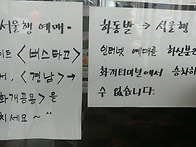 서울행 예매.
이트 <버스타고>
서, <경남> →
화개공용> 을
하세요 ~ "
화동발 → 서울행
인터넷 예매를 하신분은
화개터미널에서 승차하실
수 없습니다.